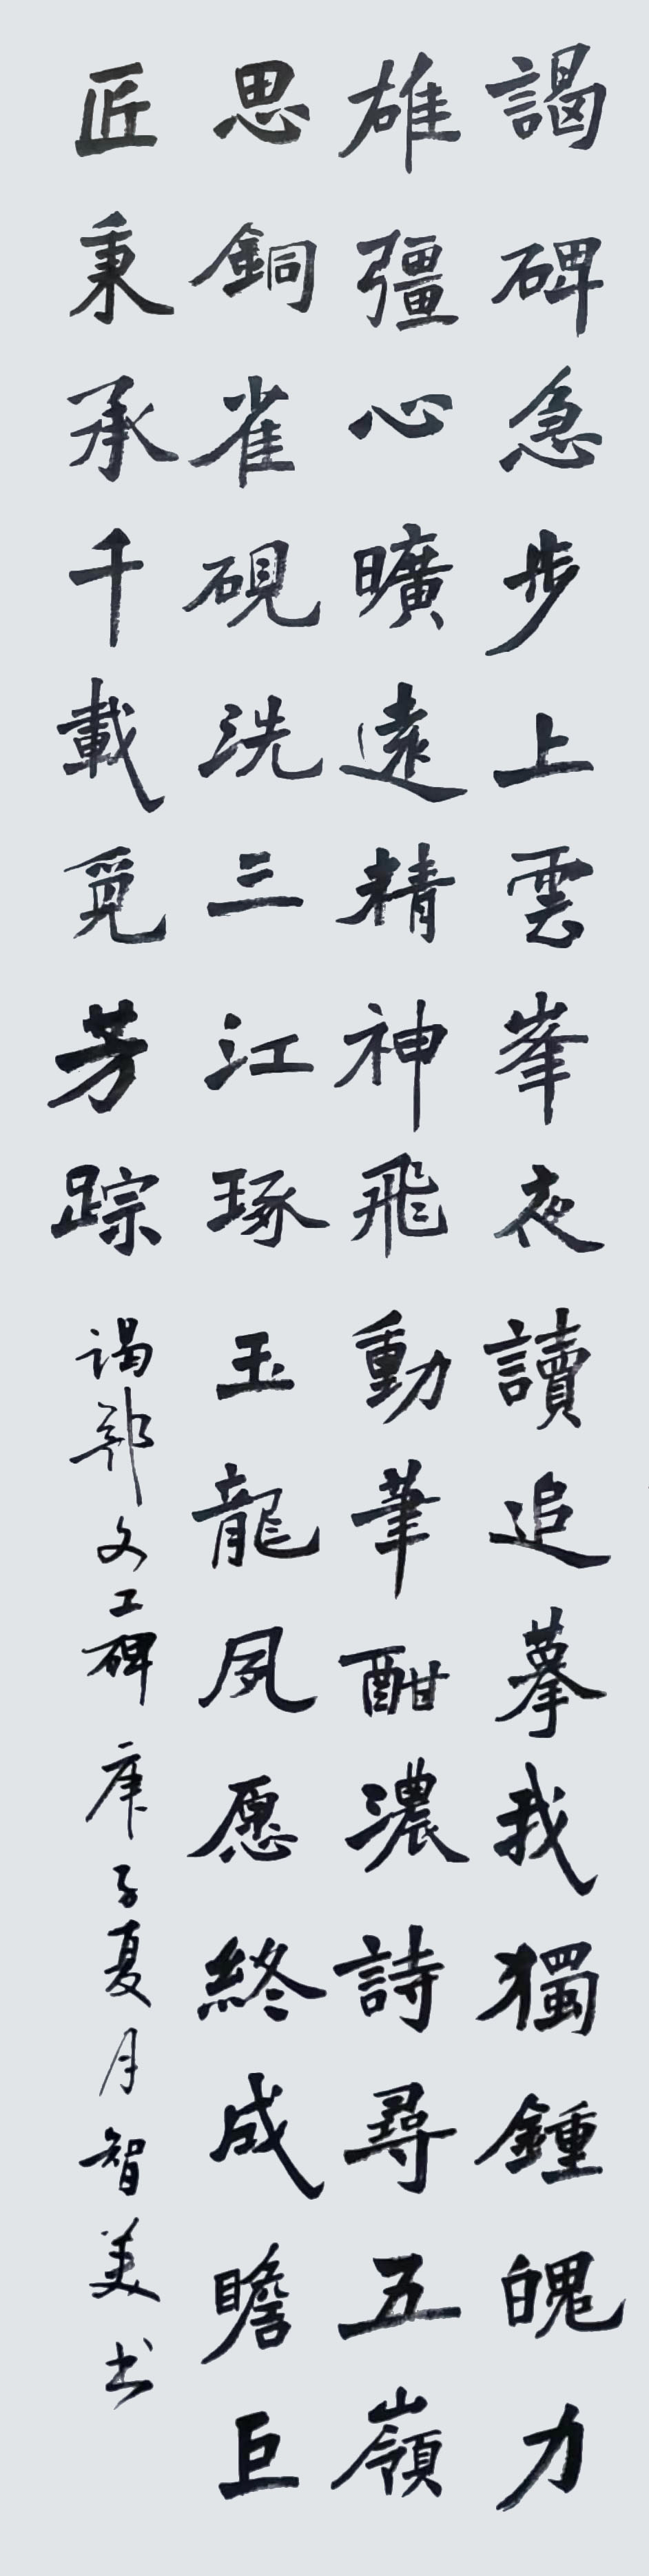 謁碑急步上雲峯夜讀追摹我獨鍾魄力
雄彊心曠遠精神飛動筆酣濃詩尋五嶺
思銅雀硯洗三江琢玉龍夙愿終成瞻巨
匠秉承千載覓芳踪
谒郑文公碑 庚子夏月智美书